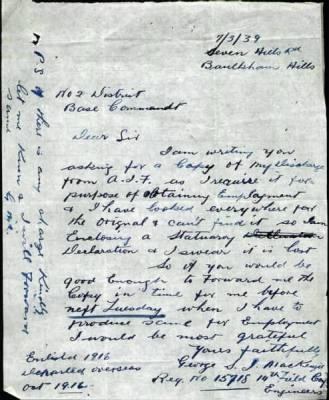 7/3/39
Seven Hills Rd
Baulkham Hills
No 2 District
Base Commandt
Dear Sir
I am writing you
asking for a Copy of my Discharge
from A.I.F. as I require it for
purpose of Obtaining Employment
& I have looked everywhere for
the Original & can't find it so am
Enclosing a Statuary
Declaration & I swear it is lost
So if you would be
good Enough to Forward me the
Copy in time for me before
next Tuesday when I have to
produce same for Employment
I would be most grateful
Yours faithfully
George S. J. Mackenzie
Reg. No 15718 14th Field Coy
Engineers
Enlisted 1916
departed overseas
Oct 1916.
P.S If there is any charge Kindly
let me Know & I will Forward
same